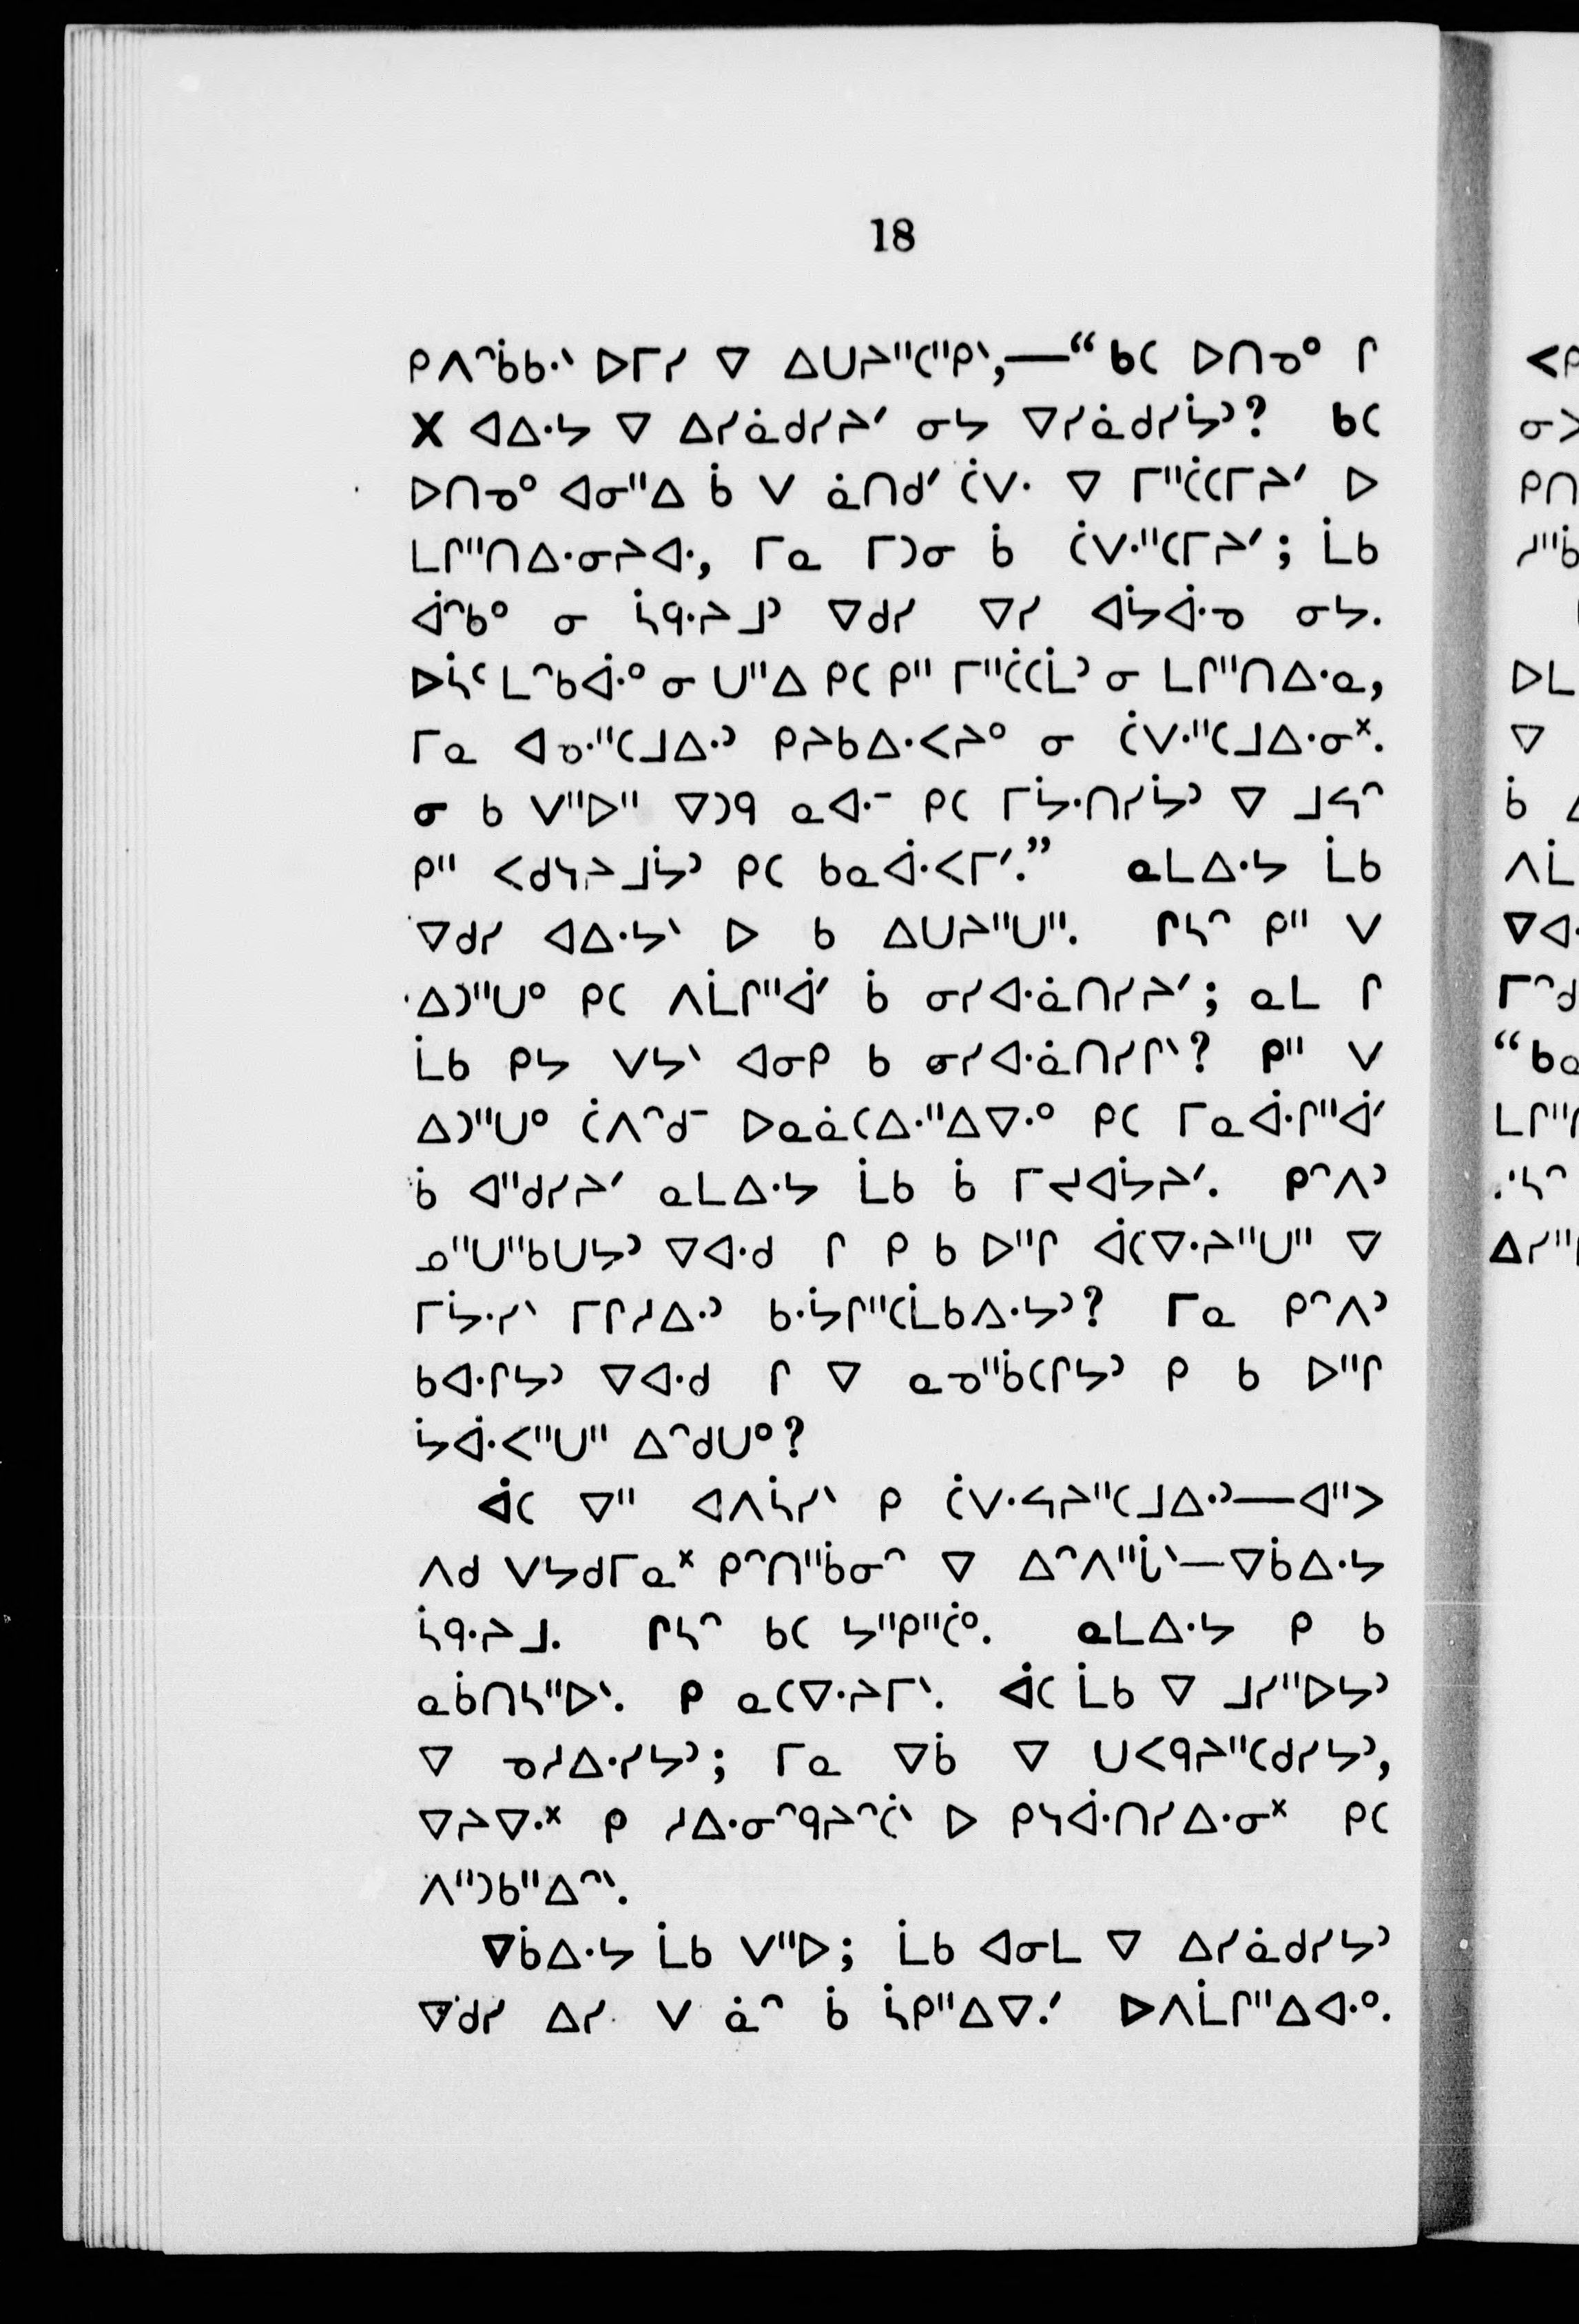 18
ᑭᐱᐢᑳᑲᐧᐠ ᐅᒥᓯ ᐁ ᐃᑌᔨᐦᑕᐦᑭᐠ,—“ᑲᑕ ᐅᑎᓀᐤ ᒋ
X ᐊᐃᐧᔭ ᐁ ᐃᓯᓈᑯᓯᔨᐟ ᓂᔭ ᐁᓯᓈᑯᓯᔮᐣ? ᑲᑕ
ᐅᑎᓀᐤ ᐊᓂᐦᐃ ᑳ ᐯ ᓈᑎᑯᐟ ᑖᐯᐧ ᐁ ᒥᐦᑖᑕᒥᔨᐟ ᐅ
ᒪᒋᐦᑎᐃᐧᓂᔨᐊᐧ, ᒥᓇ ᒥᑐᓂ ᑳ ᑖᐯᐧᐦᑕᒥᔨᐟ; ᒫᑲ
ᐋᐢᑲᐤ ᓂ ᓵᑫᐧᔨᒧᐣ ᐁᑯᓯ ᐁᓯ ᐊᔮᐚᓀ ᓂᔭ.
ᐅᓵᑦ ᒪᐢᑲᐚᐤ ᓂ ᑌᐦᐃ ᑭᑕ ᑭᐦ ᒥᐦᑖᑕᒫᐣ ᓂ ᒪᒋᐦᑎᐃᐧᓇ,
ᒥᓇ ᐊᓄᐧᐦᑕᒧᐃᐧᐣ ᑭᔨᑲᐃᐧᐸᔨᐤ ᓂ ᑖᐯᐧᐦᑕᒧᐃᐧᓂᕽ.
ᓂ ᑲ ᐯᐦᐅᐦ ᐁᑐᑫ ᓇᐊᐧᐨ ᑭᑕ ᒥᔮᐧᑎᓯᔮᐣ ᐁ ᒧᔕᐢ
ᑭᐦ ᐸᑯᓭᔨᒧᔮᐣ ᑭᑕ ᑲᓇᐚᐸᒥᐟ.” ᓇᒪᐃᐧᔭ ᒫᑲ
ᐁᑯᓯ ᐊᐃᐧᔭᐠ ᐅ ᑲ ᐃᑌᔨᐦᑌᐦ. ᒋᓴᐢ ᑭᐦ ᐯ
ᐃᑐᐦᑌᐤ ᑭᑕ ᐱᒫᒋᐦᐋᐟ ᑳ ᓂᓯᐊᐧᓈᑎᓯᔨᐟ; ᓇᒪ ᒋ
ᒫᑲ ᑭᔭ ᐯᔭᐠ ᐊᓂᑭ ᑲ ᓂᓯᐊᐧᓈᑎᓯᒋᐠ? ᑭᐦ ᐯ
ᐃᑐᐦᑌᐤ ᑖᐱᐢᑰᐨ ᐅᓇᓈᑕᐃᐧᐦᐃᐁᐧᐤ ᑭᑕ ᒥᓇᐚᒋᐦᐋᐟ
ᑳ ᐊᐦᑯᓯᔨᐟ ᓇᒪᐃᐧᔭ ᒫᑲ ᑳ ᒥᔪᐊᔮᔨᐟ. ᑭᐢᐱᐣ
ᓄᐦᑌᐦᑲᑌᔭᐣ ᐁᐊᐧᑯ ᒋ ᑭ ᑲ ᐅᐦᒋ ᐋᑕᐁᐧᔨᐦᑌᐦ ᐁ
ᒥᔮᐧᓯᐠ ᒥᒋᓱᐃᐧᐣ ᑲᐧᔮᒋᐦᑕᒫᑲᐃᐧᔭᐣ? ᒥᓇ ᑭᐢᐱᐣ
ᑲᐊᐧᒋᔭᐣ ᐁᐊᐧᑯ ᒋ ᐁ ᓇᓀᐦᑳᑕᒋᔭᐣ ᑭ ᑲ ᐅᐦᒋ
ᔮᐚᐸᐦᑌᐦ ᐃᐢᑯᑌᐤ?
ᐋᑕ ᐁᐦ ᐊᐱᓵᓯᐠ ᑭ ᑖᐯᐧᔕᔨᐦᑕᒧᐃᐧᐣ—ᐊᐦᐳ
ᐱᑯ ᐯᔭᑯᒥᓇᕽ ᑭᐢᑎᐦᑳᓂᐢ ᐁ ᐃᐢᐱᐦᒑᐠ—ᐁᑳᐃᐧᔭ
ᓵᑫᐧᔨᒧ. ᒋᓴᐢ ᑲᑕ ᔭᐦᑭᐦᑖᐤ. ᓇᒪᐃᐧᔭ ᑭ ᑲ
ᓇᑳᑎᓴᐦᐅᐠ. ᑭ ᓇᑕᐁᐧᔨᒥᐠ. ᐋᑕ ᒫᑲ ᐁ ᒧᓯᐦᐅᔭᐣ
ᐁ ᓀᓱᐃᐧᓯᔭᐣ; ᒥᓇ ᐁᑳ ᐁ ᑌᐸᑫᔨᐦᑕᑯᓯᔭᐣ,
ᐁᔨᐁᐧᕽ ᑭ ᓱᐃᐧᓂᐢᑫᔨᐢᑖᐠ ᐅ ᑭᓭᐚᑎᓯᐃᐧᓂᕽ ᑭᑕ
ᐱᐦᑐᑲᐦᐃᐢᐠ.
ᐁᑳᐃᐧᔭ ᒫᑲ ᐯᐦᐅ; ᒫᑲ ᐊᓂᒪ ᐁ ᐃᓯᓈᑯᓯᔭᐣ
ᐁᑯᓯ ᐃᓯ ᐯ ᓈᐢ ᑳ ᓵᑭᐦᐃᐁᐧᐟ ᐅᐱᒫᒋᐦᐃᐊᐧᐤ.